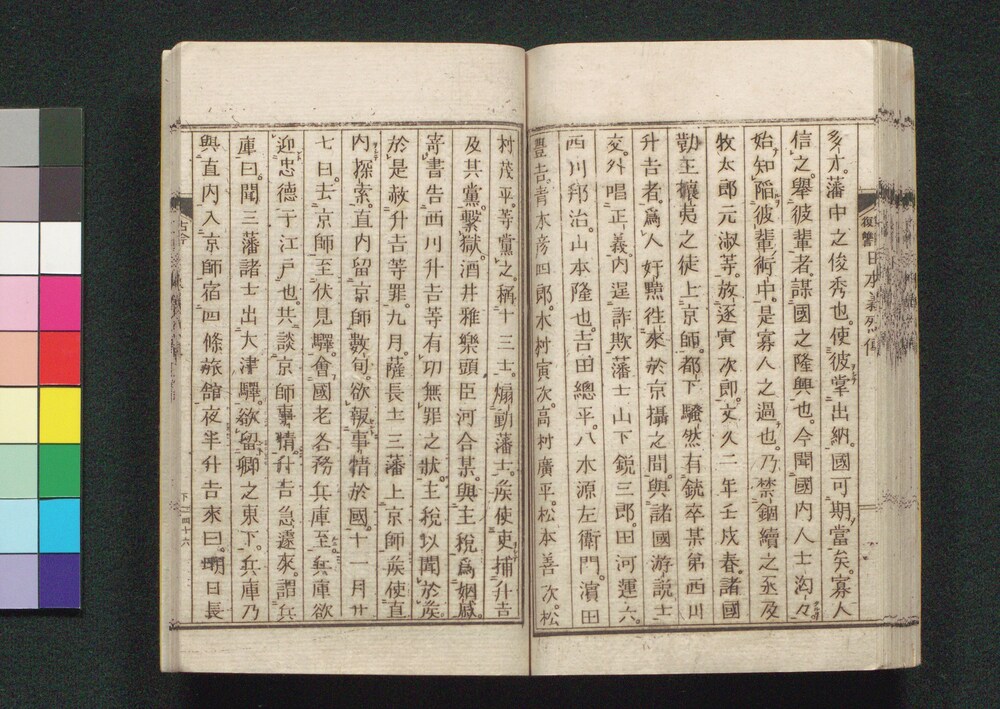 多才。藩中之俊秀也。使彼掌出納。國可期富矣。寡人
信之。舉彼輩者。謀國之隆興也。今聞國內人士洶々
始知陷彼輩術中。是寡人之過也。乃禁錮續之丞及
牧太郎元淑等。放逐寅次郎。文久二年壬戌春。諸國
勤王攘夷之徒上京師。都下騷然有銃卒某弟西川
升吉者。爲人奸黠往來於京攝之間。與諸國游說士
交。外唱正義。內逞詐欺藩士山下鋭三郎。田河運六。
西川邦治。山本隆也。吉田總平。八木源左衛門。濵田
豐吉。青木彦四郎。木村寅次。高村廣平。松本善次。松
村茂平。等黨之。稱十三士。煽動藩士。矦使吏捕升吉
及其黨。繫獄。酒井雅樂頭臣河合某。與主稅爲姻戚。
寄書告西川升吉等有功無罪之狀。主稅以聞於矦。
於是赦升吉等罪。九月。薩長土三藩上京師矦使直
內探索。直内留京師數旬。欲報事情於國。十一月廿
七日去京師至伏見驛。會國老各務兵庫至兵庫欲
迎忠德于江戶也。共談京師事情。升吉急遽來。謂兵
庫曰。聞三藩諸士出大津驛。欲留卿之東下。兵庫乃
與直内入京師宿四條旅舘夜半升吉來曰。明日長
復讐 日本義烈傳
古今
下 四十六